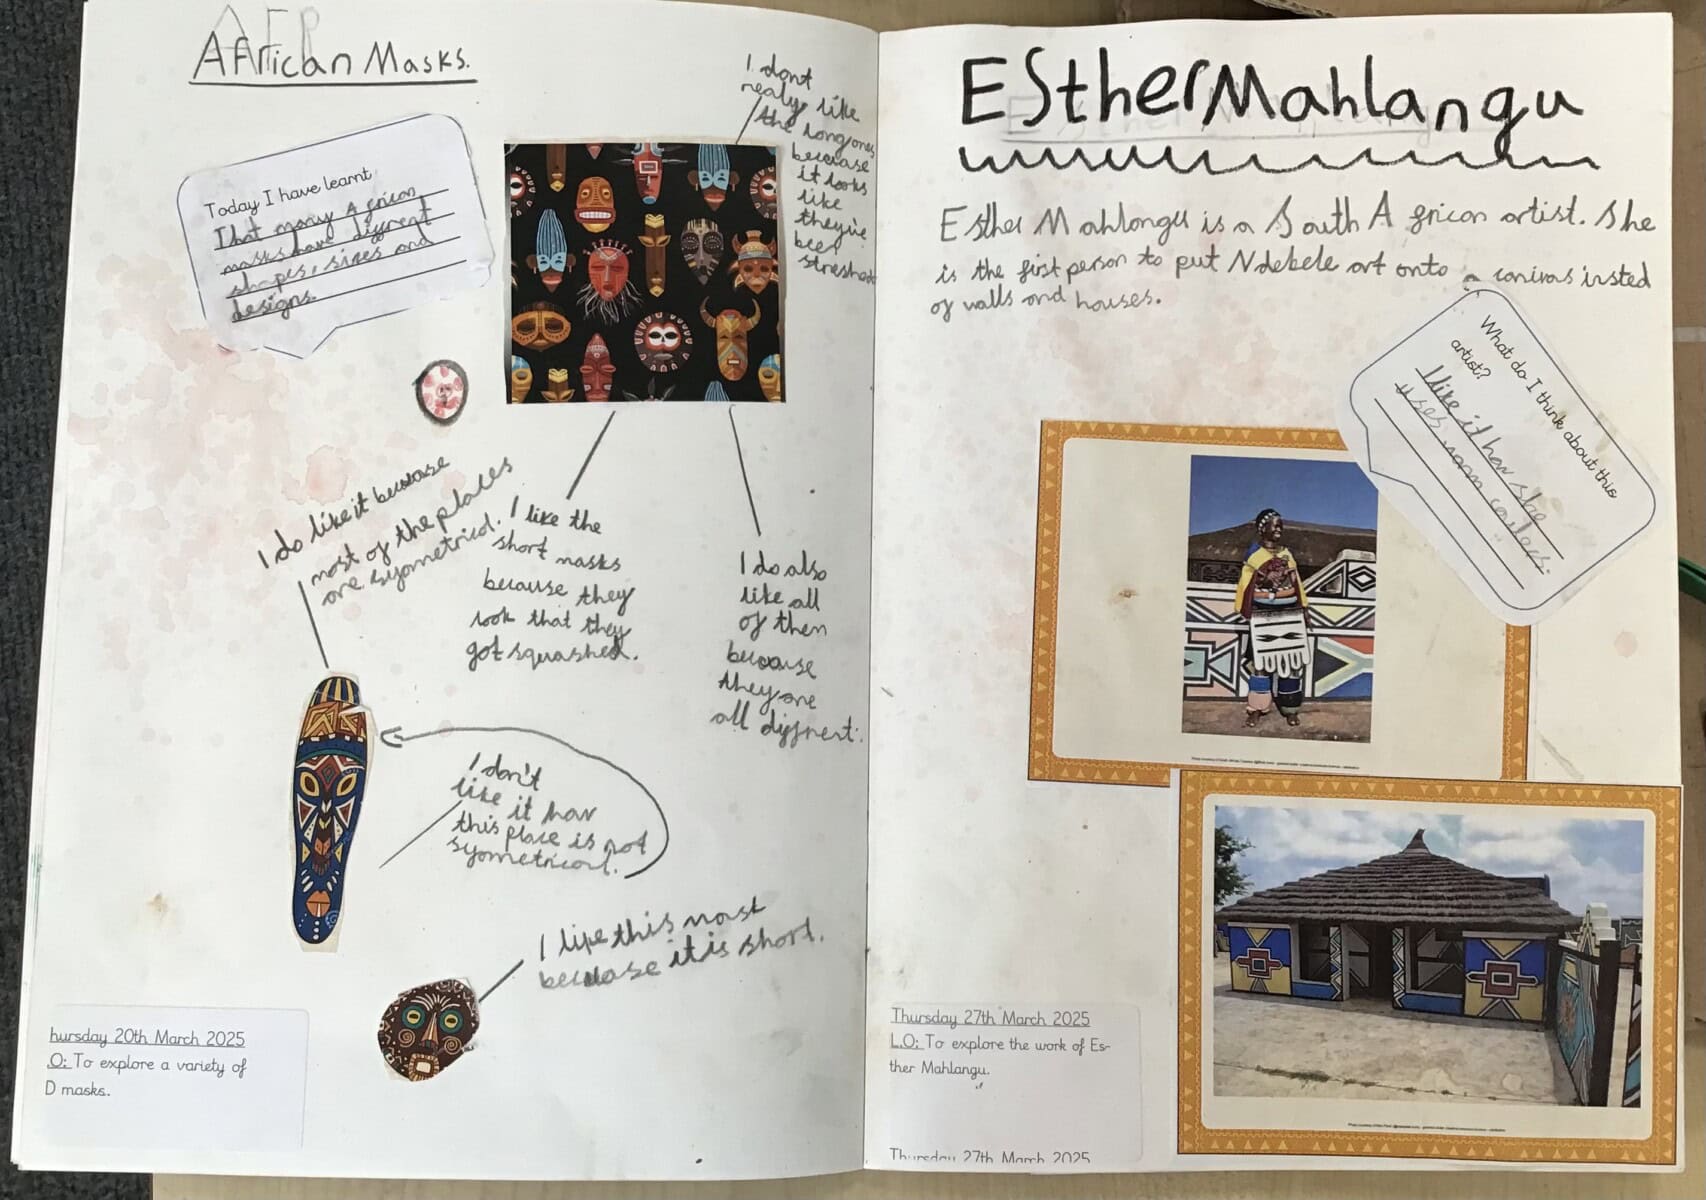 AFR
African Masks.
Today I have learnt
That many African
masks have diffrent
shapes, sizes and
designs.
I dont
realy like
the long ones
because
it looks
like
they're
bee
streshed
I do like it because
most of the places
are symetrical.
I like the
short masks
because they
look that they
got squashed.
I do also
like all
of them
because
they are
all diffrent.
I don't
like it how
this place is not
symetrical.
I like this most
because it is short.
hursday 20th March 2025
O: To explore a variety of
D masks.
Esther Mahlangu
Esther Mahlangu is a South African artist. She
is the first person to put Ndebele art onto a canvas insted
of walls and houses.
What do I think about this
artist?
I like it how she
uses
Thursday 27th March 2025
L.O: To explore the work of Es-
ther Mahlangu.
Thursday 27th March 2025